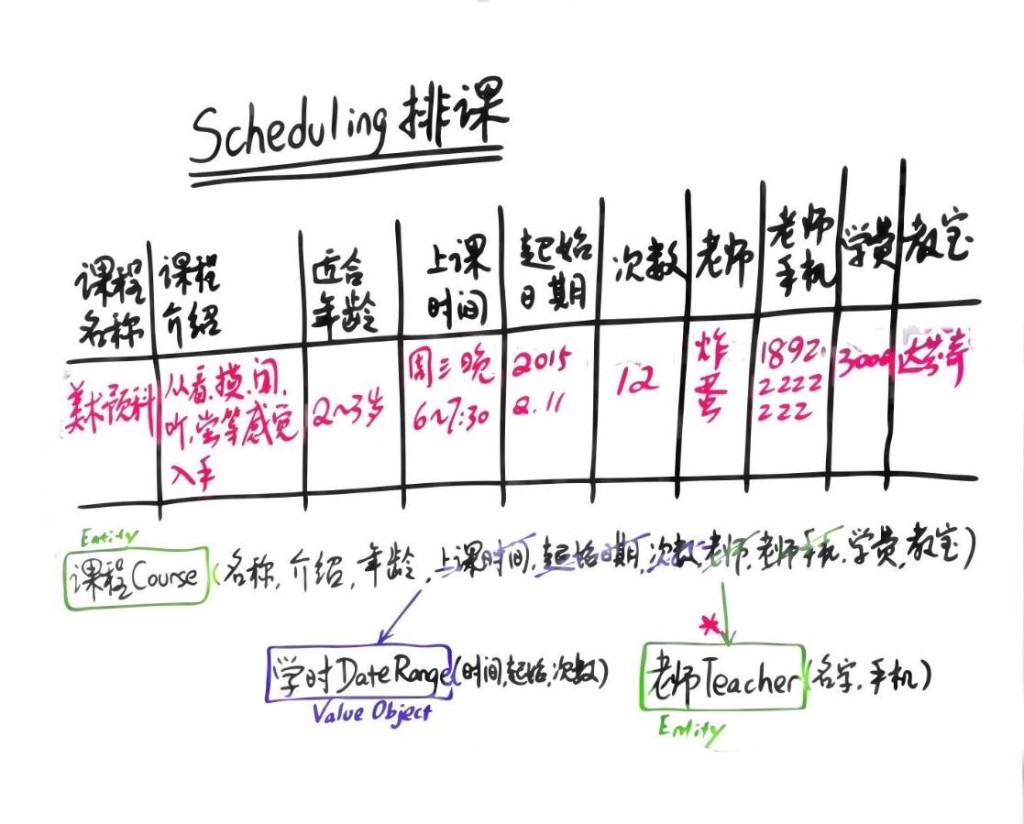 Scheduling 排课
课程名称 课程介绍 适合年龄 上课时间 起始日期 次数 老师 老师手机 学费 教室
美术预科 从看,摸,闻,听,尝等感觉入手 2~3岁 周三晚6~7:30 2015 2.11 12 炸蛋 1892 2222 222 3000
Entity
课程Course (名称,介绍,年龄,上课时间,起始日期,次数,老师,老师手机,学费,教室)
*
学时DateRange(时间,起始,次数) 老师Teacher(名字,手机)
Value Object Entity